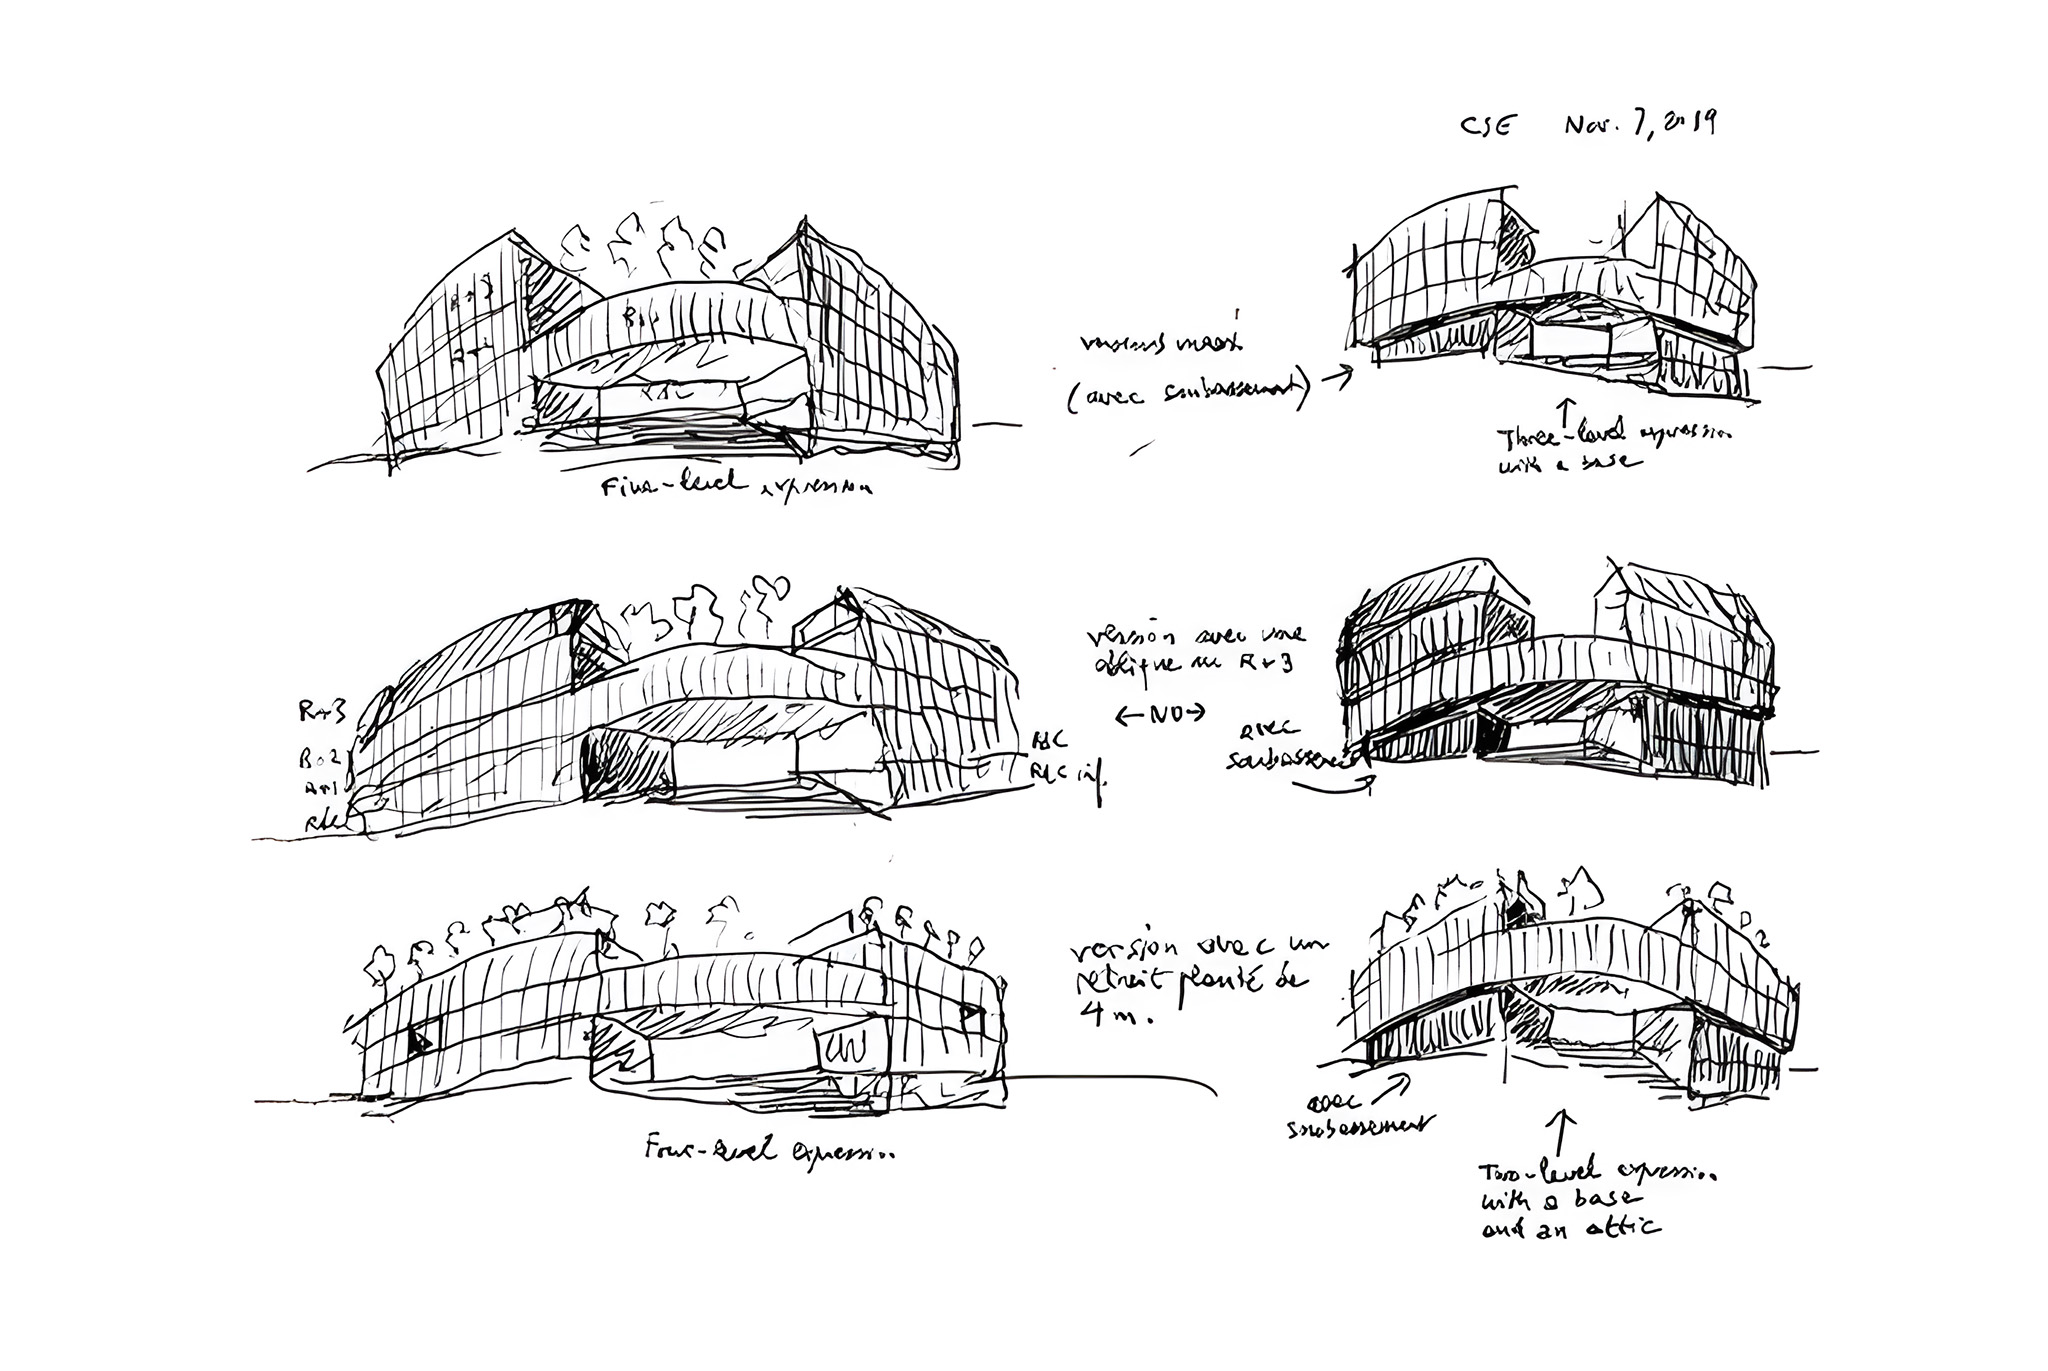 CSE Nov. 7, 2019
R+3
R+1
RdC
Five-level expression
version maxi
(avec soubassement) →
Three-level expression
with a base
R+3
R+2
R+1
RdC
RdC
RdC inf.
version avec une
oblique au R+3
← NO →
avec
soubassement
Four-level expression
version avec un
retrait planté de
4 m.
avec
soubassement
Two-level expression
with a base
and an attic